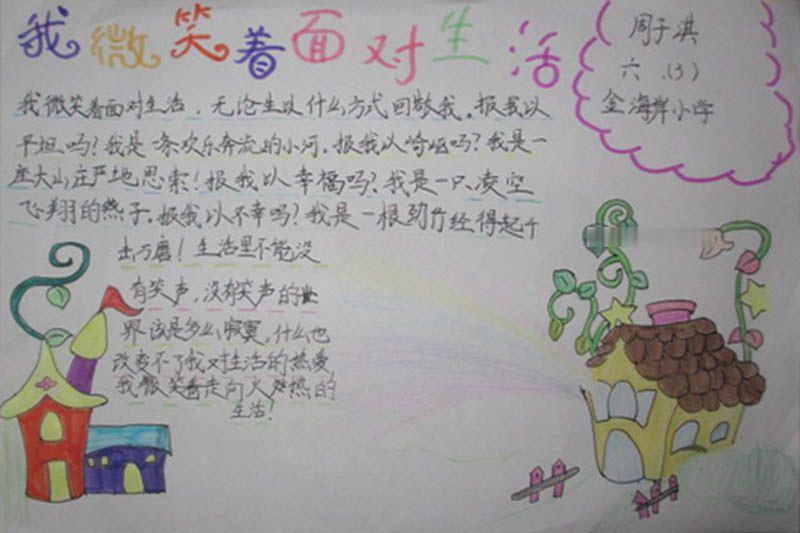 我微笑着面对生活
周子淇
六.(3)
金海岸小学
我微笑着面对生活,无论生以什么方式回敬我。报我以
平坦吗?我是一条欢乐奔流的小河。报我以崎岖吗?我是一
座大山庄严地思索!报我以幸福吗?我是一只凌空
飞翔的燕子。报我以不幸吗?我是一根劲竹经得起千
击万磨!生活里不能没
有笑声,没有笑声的世
界该是多么寂寞。什么也
改变不了我对生活的热爱,
我微笑着走向火热的
生活!